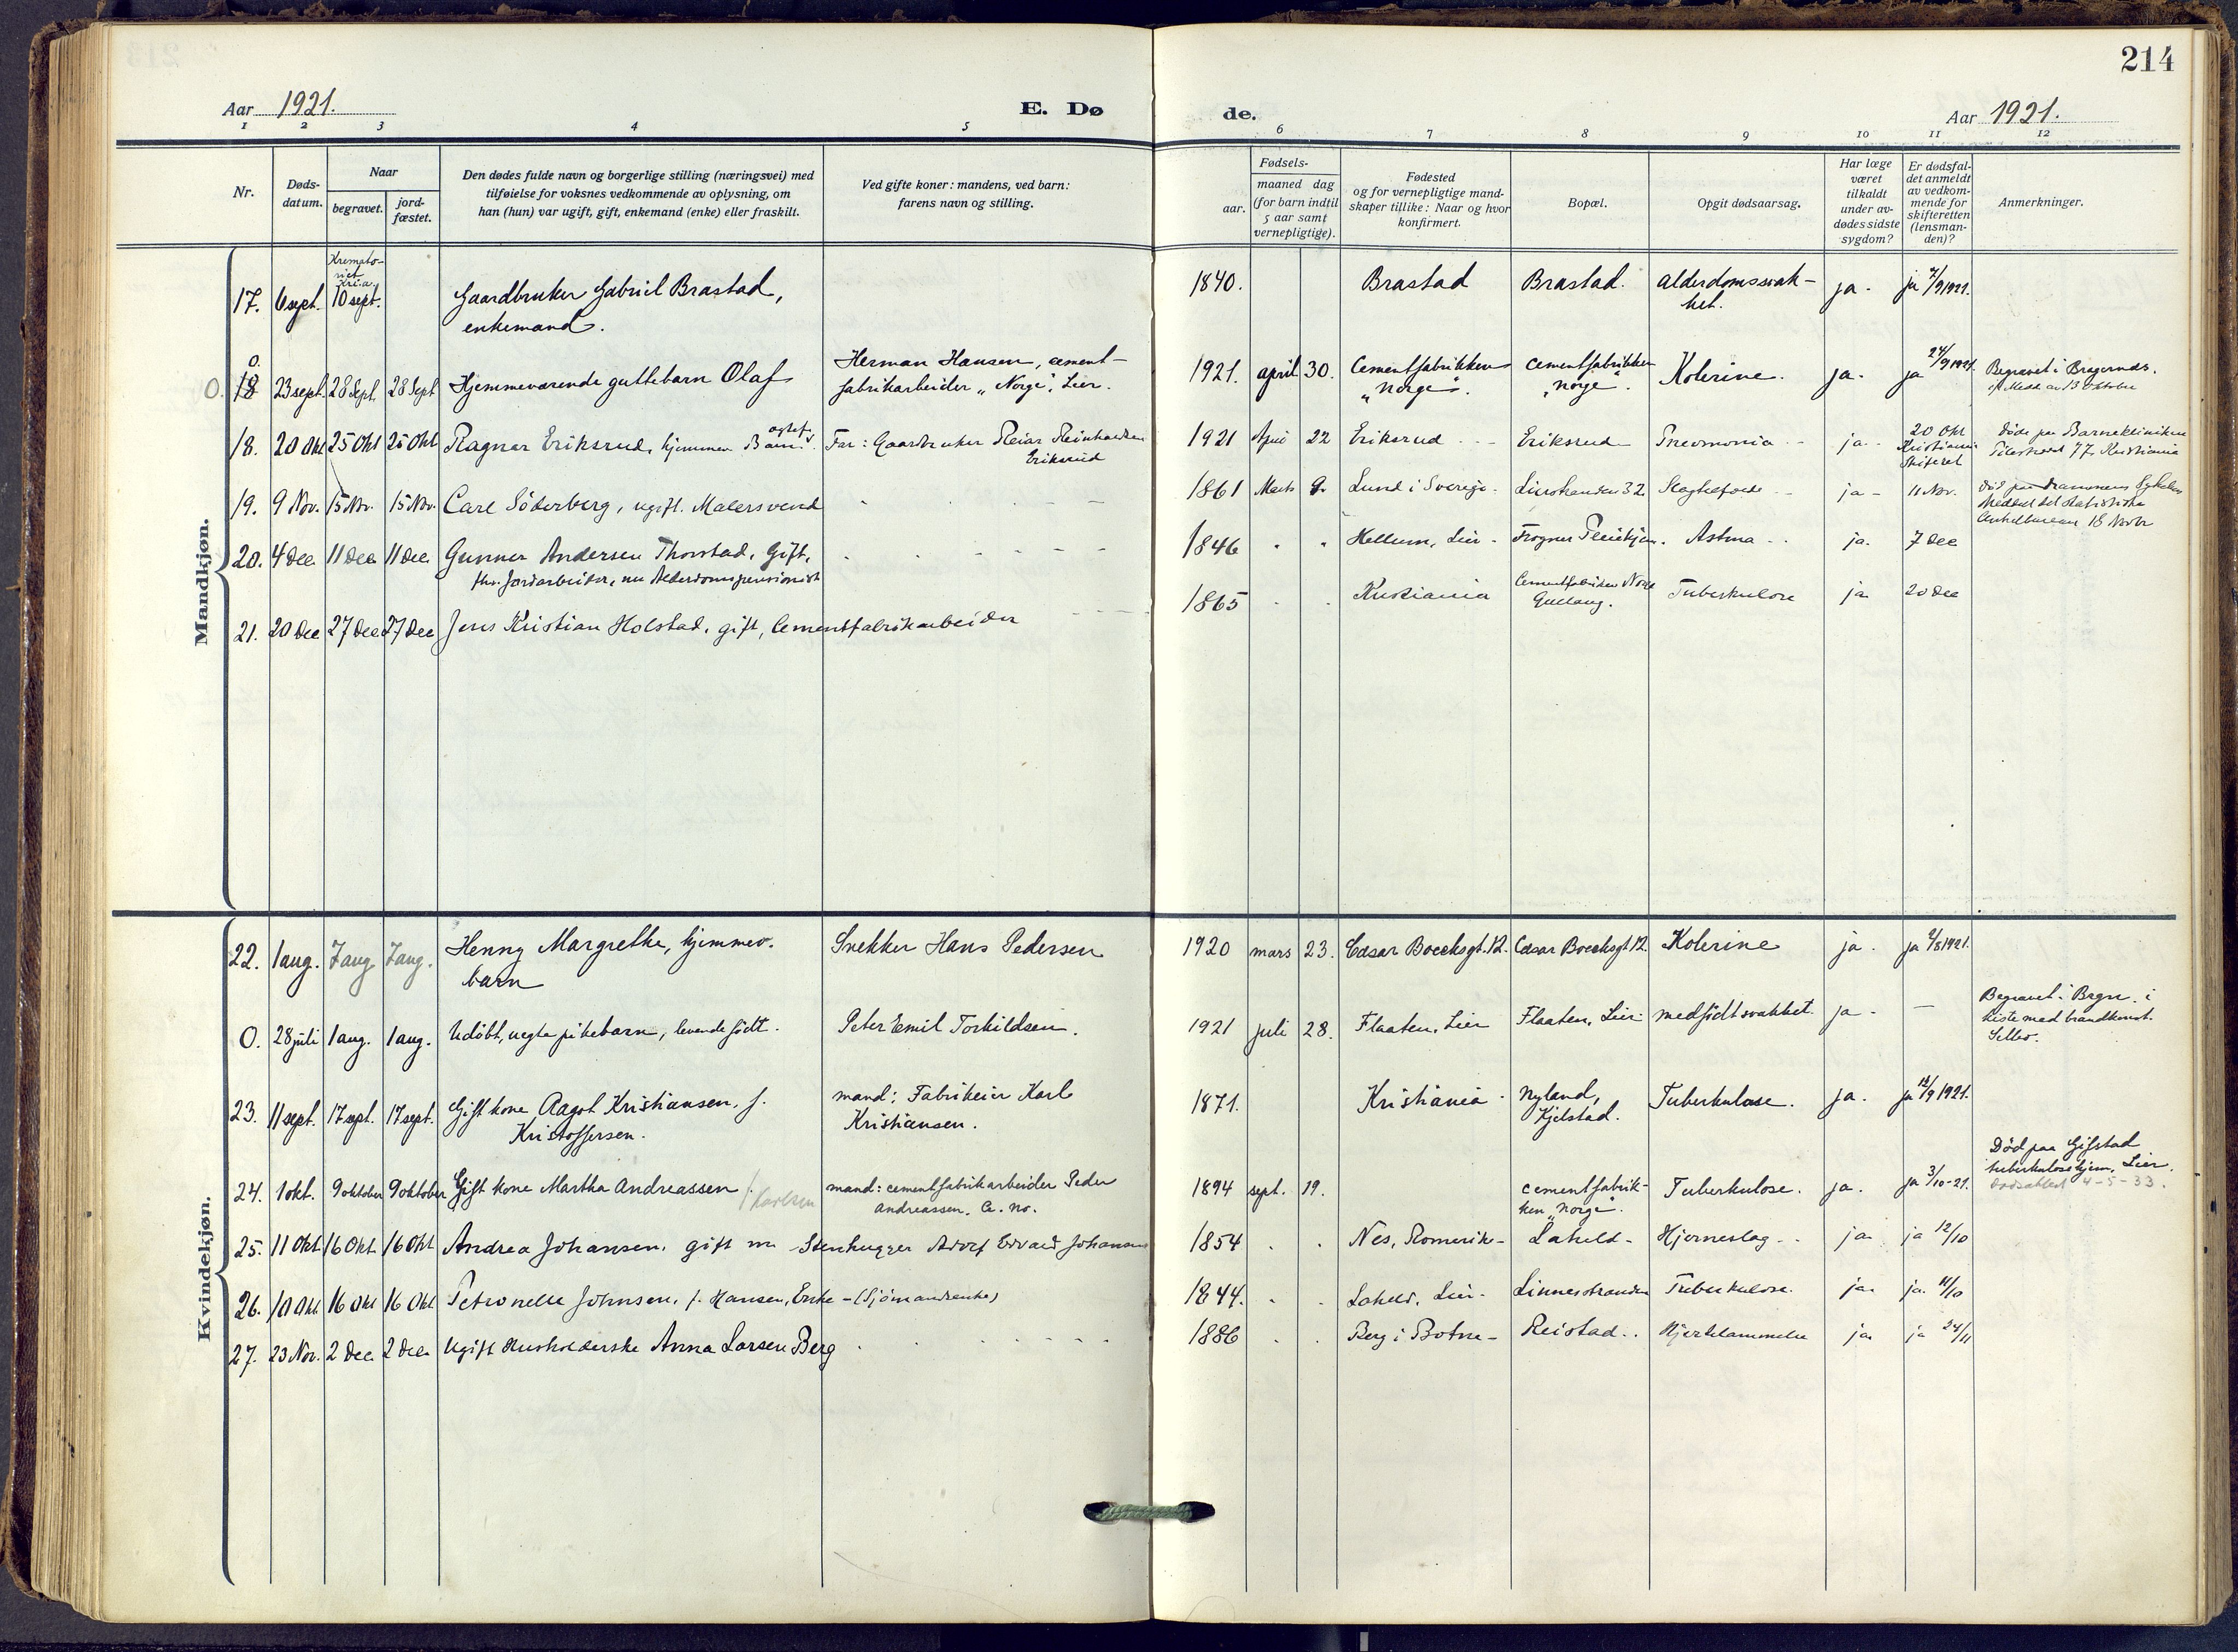 214
Aar 1921.
E. Dø
de.
Aar 1921.
1 2 3 4 5 6 7 8 9 10 11 12
Nr.
Døds-
datum.
Naar
begravet.
jord-
fæstet.
Den dødes fulde navn og borgerlige stilling (næringsvei) med
tilføielse for voksnes vedkommende av oplysning, om
han (hun) var ugift, gift, enkemand (enke) eller fraskilt.
Ved gifte koner: mandens, ved barn:
farens navn og stilling.
Fødsels-
aar.
maaned dag
(for barn indtil
5 aar samt
vernepligtige).
Fødested
og for vernepligtige mand-
skaper tillike: Naar og hvor
konfirmert.
Bopæl.
Opgit dødsaarsag.
Har læge
været
tilkaldt
under av-
dødes sidste
sygdom?
Er dødsfal-
det anmeldt
av vedkom-
mende for
skifteretten
(lensman-
den)?
Anmerkninger.
Mandkjøn.
Kremato-
riet
Kr.a.
17. 6 sept. 10 sept. Gaardbruker Gabriel Brastad, 1840. Brastad Brastad. Alderdomssvak- ja. ja 7/9 1921.
enkemand. het.
O.
O. 18 23 sept. 28 sept. 28 sept Hjemmeværende guttebarn Olaf Herman Hansen, cement- 1921. april 30. Cementfabrikken cementfabrikken Kolerine. ja. ja 24/9 1921. Begravet i Bragernes.
fabrikarbeider "Norge", Lier. "Norge". "Norge". 13 oktober
18. 20 Okt 25 Okt 25 Okt Ragnar Eriksrud, hjemmev Barn. ogtef. Far: Gaardbruker Reiar Reinhardsen 1921 April 22 Eriksrud Eriksrud Pnevmonia ja 20 Okt Døde paa Barnekliniken
Eriksrud Kristiania Pilestrædet 77, Kristiania
Skifteret
19. 9 Nov. 15 Nov. 15 Nov. Carl Söderberg, ugift. Malersvend 1861 Marts 9. Lund i Sverige Lierstranden 32 ja 11 Nov. Død paa Drammens Sykehus
Meddelt det statistiske
Centralbureau 18 Novbr
20. 4 Dec 11 Dec 11 Dec Gunner Andersen Thorstad, Gift, 1846 Hellum, Lier Frogner Pleiehjem. Astma ja. 7 Dec
fhv. Jordarbeider, nu Alderdomspensionist
21. 20 Dec 27 Dec 27 Dec Jens Kristian Holstad, gift, Cementfabrikarbeider 1865 Kristiania Cementfabriken Norge Tuberkulose ja 20 Dec
Gullaug.
Kvindekjøn.
22. 1 aug. 7 aug 7 aug. Henny Margrethe, hjemmev. Snekker Hans Pedersen 1920 mars 23. Cæsar Boecksgt. 12. Cæsar Boecksgt. 12. Kolerine ja. ja 2/8 1921.
barn
O. 28 juli 1 aug. 1 aug. Udöbt, uegte pikebarn, levende födt. Peter Emil Torkildsen. 1921 juli 28. Flaaten, Lier Flaaten, Lier. medfödt svakhet. ja. — Begravet i Bragn. i
kiste med
23. 11 sept. 17 sept. 17 sept. Gift kone Aagot Kristiansen, f. mand: Fabrikeier Karl 1871. Kristiania. Nyland, Tuberkulose. ja. ja 12/9 1921.
Kristoffersen. Kristiansen. Kjelstad.
24. 1 okt. 9 oktober 9 oktober Gift kone Martha Andreassen f. Karlsen mand: cementfabrikarbeider Peder 1894 sept. 19. cementfabrik- Tuberkulose. ja. ja 3/10-21. Død paa Gifstad
Andreassen. C. No. ken "Norge". tuberkulosehjem, Lier.
Dødsattest 4-5-33.
25. 11 Okt 16 Okt 16 Okt Andrea Johansen, gift m Stenhugger Adolf Edvard Johansen 1854 Nes, Romerike Laheld Hjerneslag ja ja 12/10
26. 10 Okt 16 Okt 16 Okt Petronelle Johnsen, f. Hansen, Enke (Sjømandsenke) 1844. Laheld, Lier Linnesstranden Tuberkulose. ja ja. 11/10
27. 23 Nov. 2 Dec 2 Dec Ugift Husholderske Anna Larsen Berg 1886 Berg i Botne Reistad Hjertelammelse ja ja 24/11